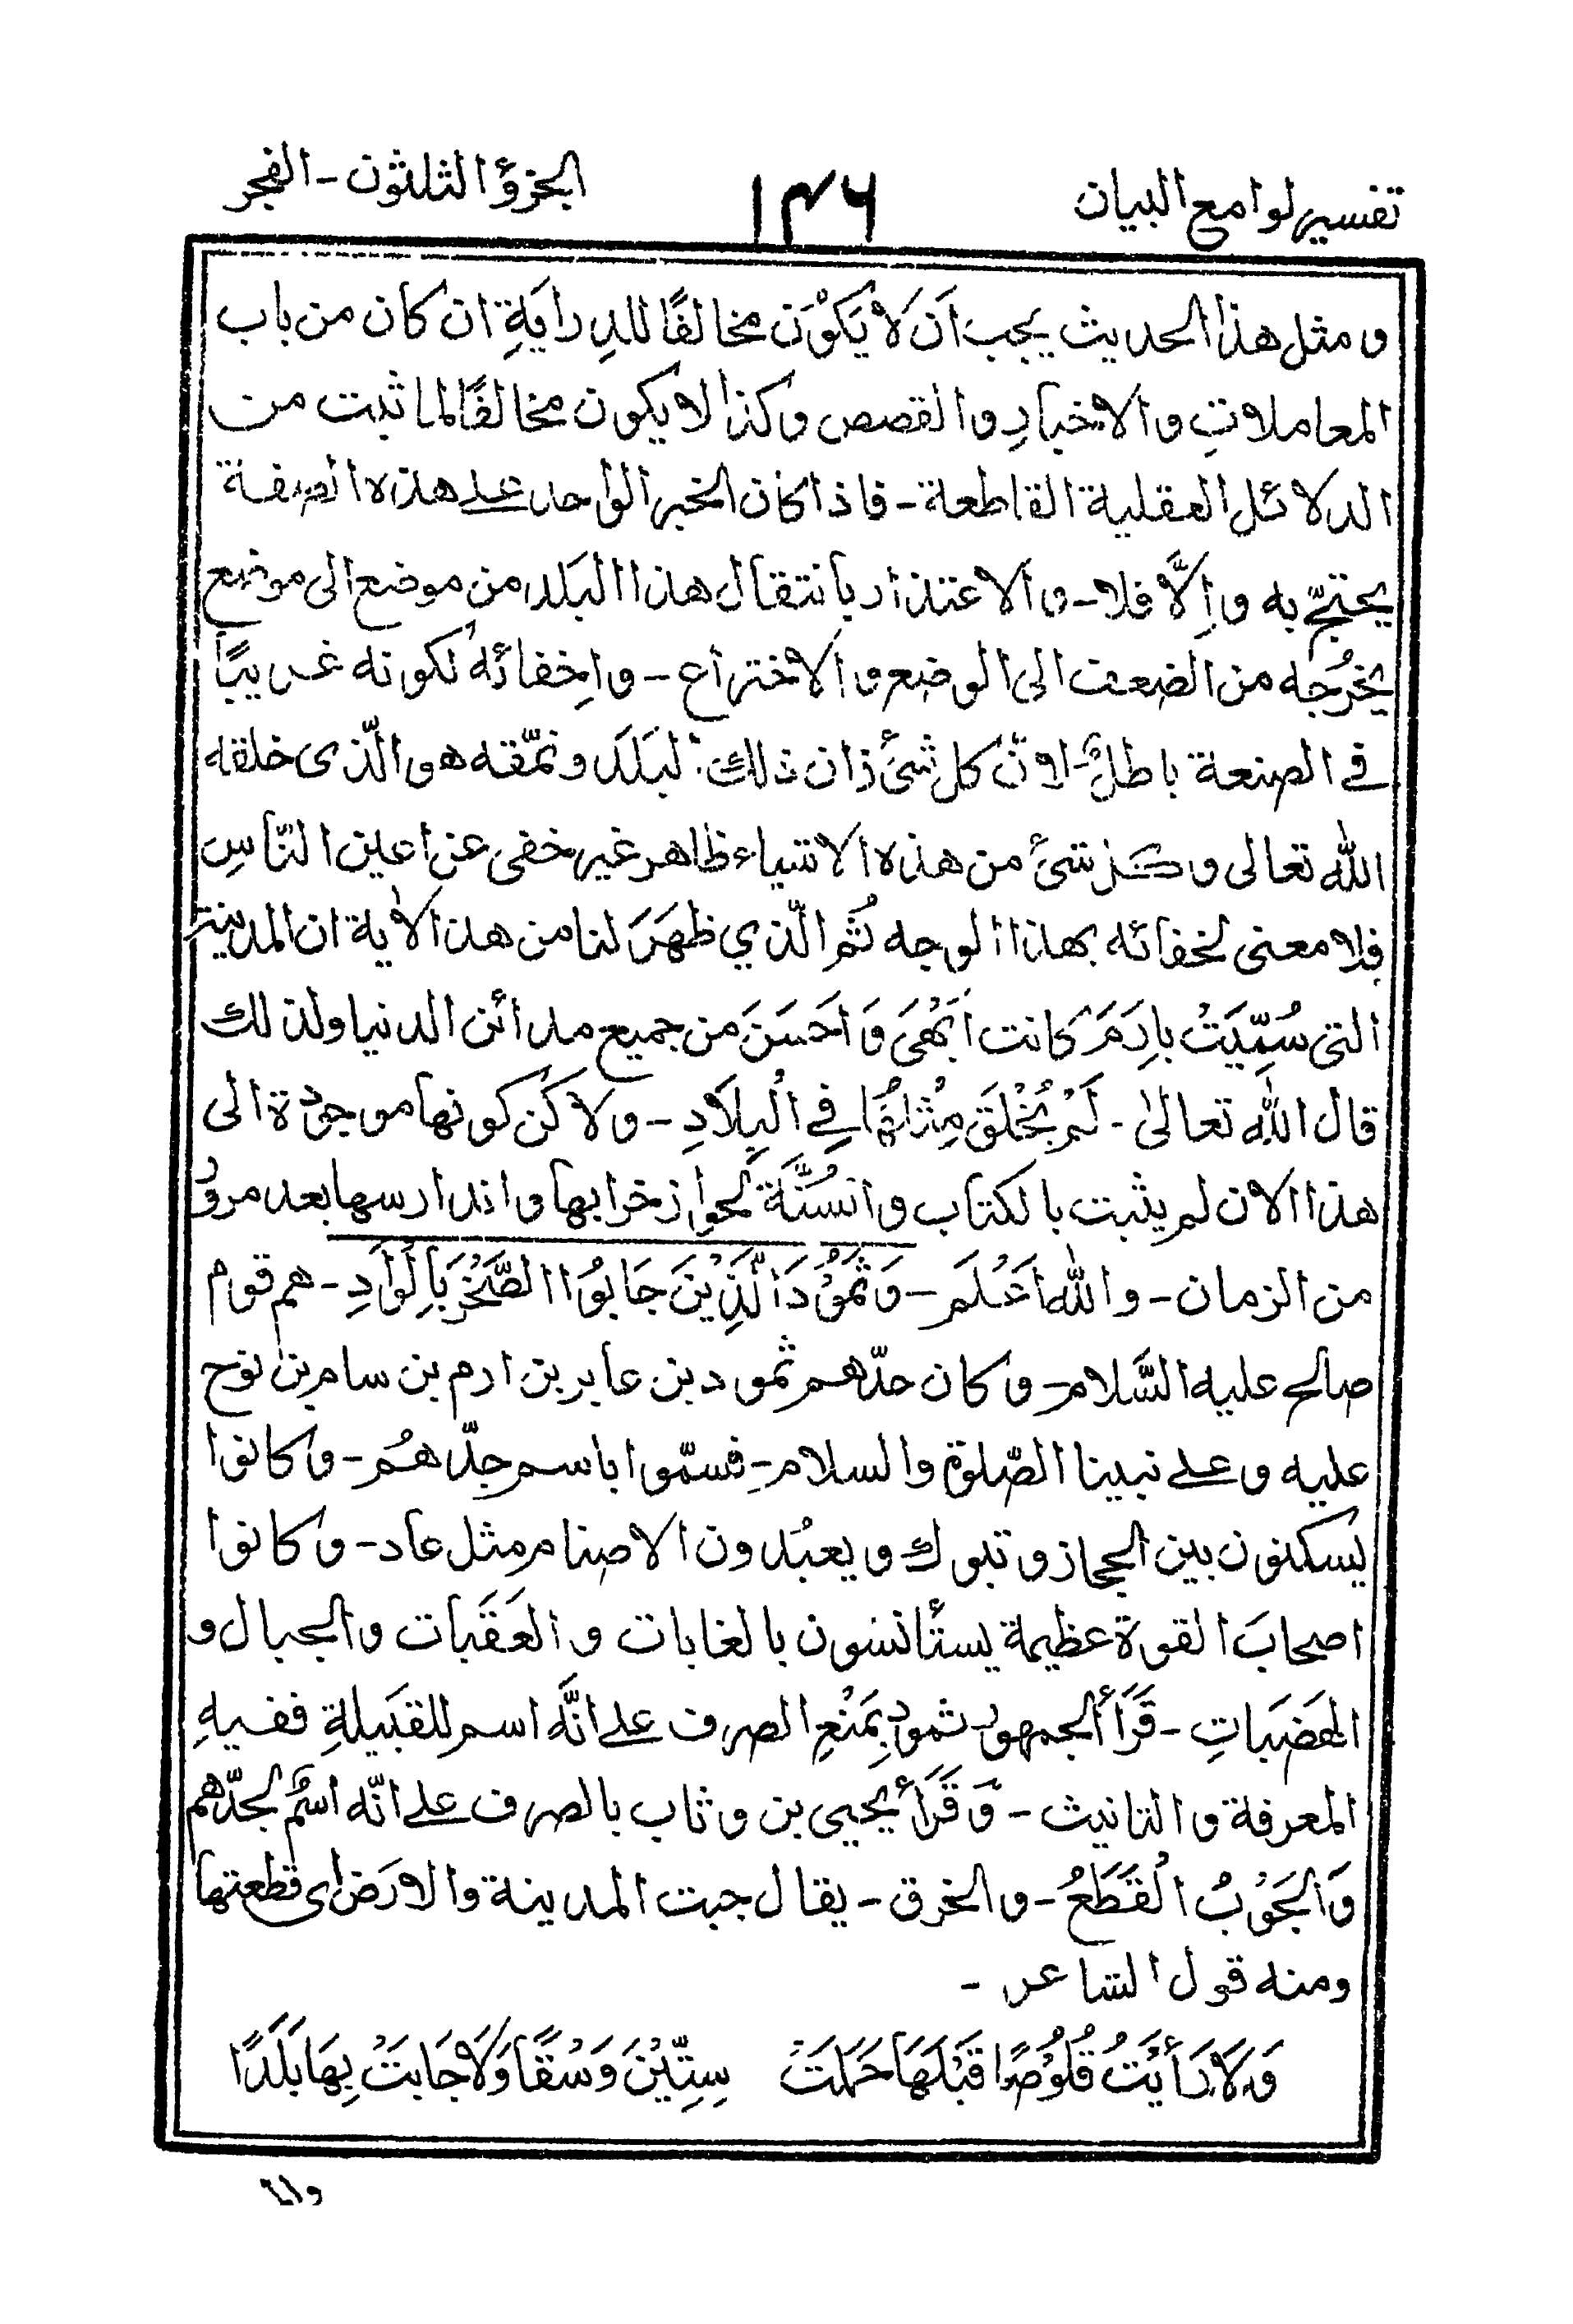 تفسیر لوامع البیان ۱۴۶ الجزؤ الثلثون - الفجر
و مثل هذا الحدیث یجب اَن لَا یَکُوْنَ مخالفًا للدِرایَةِ ان کان من باب
المعاملاتِ والاخبارِ والقصص وکذا لا یکون مخالفًا لما ثبت من
الدلائل العقلیة القاطعة - فاذا کان الخبر الواحد علے هذه الصفة
یحتجّ به واِلَّا فلا - والاعتذار بانتقال هذا البلد من موضع الی موضع
یخرُجه من الضعف الی الوضع والاختراع - واِخفائه لکونه غریبًا
فی الصنعة باطلٌ - لانّ کل شئ زان ذلك البَلَد ونمّقه هو الّذی خلقه
الله تعالی و کل شئ من هذه الاشیاء ظاهر غیر خفی عن اعین النّاسِ
فلا معنی لخفائه بهذا الوجه ثُم الّذي ظهَرَ لنا من هذا الاٰیة ان المدینة
التی سُمِّیَتْ بِاِرَمَ کانت اَبْهَیَ وَاَحْسَنَ من جمیع مدائن الدنیا ولذلك
قال الله تعالیٰ - لَمْ یُخْلَق مِثْلُهَا فِے الْبِلَادِ - ولاکن کونها موجودة الی
هذا الان لم یثبت بالکتاب والسُّنَّة لجواز خرابها واندارسها بعد مرؤ
من الزمان - والله اَعْلَم - وَثَمُوْدَ الَّذِیْنَ جَابُوا الصَّخْرَ بِالْوَادِ - هم قوم
صالح علیه السَّلام - وکان جدّهم ثمود بن عابر بن ارم بن سام بن نوح
علیه وعلے نبینا الصّلوة والسلام - فسمّوا باسم جدّهُم - وکانوا
یسکنون بین الحجاز و تبوك ویعبُدون الاصنام مثل عاد - وکانوا
اصحابَ القوة عظیمة یستأنسون بالغابات والعَقَبات والجبال و
الهَضَباتِ - قَرَأَ الجمهور ثمود بِمَنْعِ الصرف علے انَّه اسم للقبَیلةِ ففیهِ
المعرفة والتانیث - وَقَرَأَ یحیی بن وثاب بالصرف علے انّه اسمٌ لجدّهم
وَالجَوْبُ الْقَطَعُ - والخرق - یقال جبت المدینة والارَض ای قطعتها
ومنه قول الشاعر -
وَلَا رَأَیْتُ قُلُوْصًا قَبْلَهَا حَمَلَتْ سِتِّیْنَ وَسْقًا وَلَا جَابَتْ بِهَا بَلَدًا